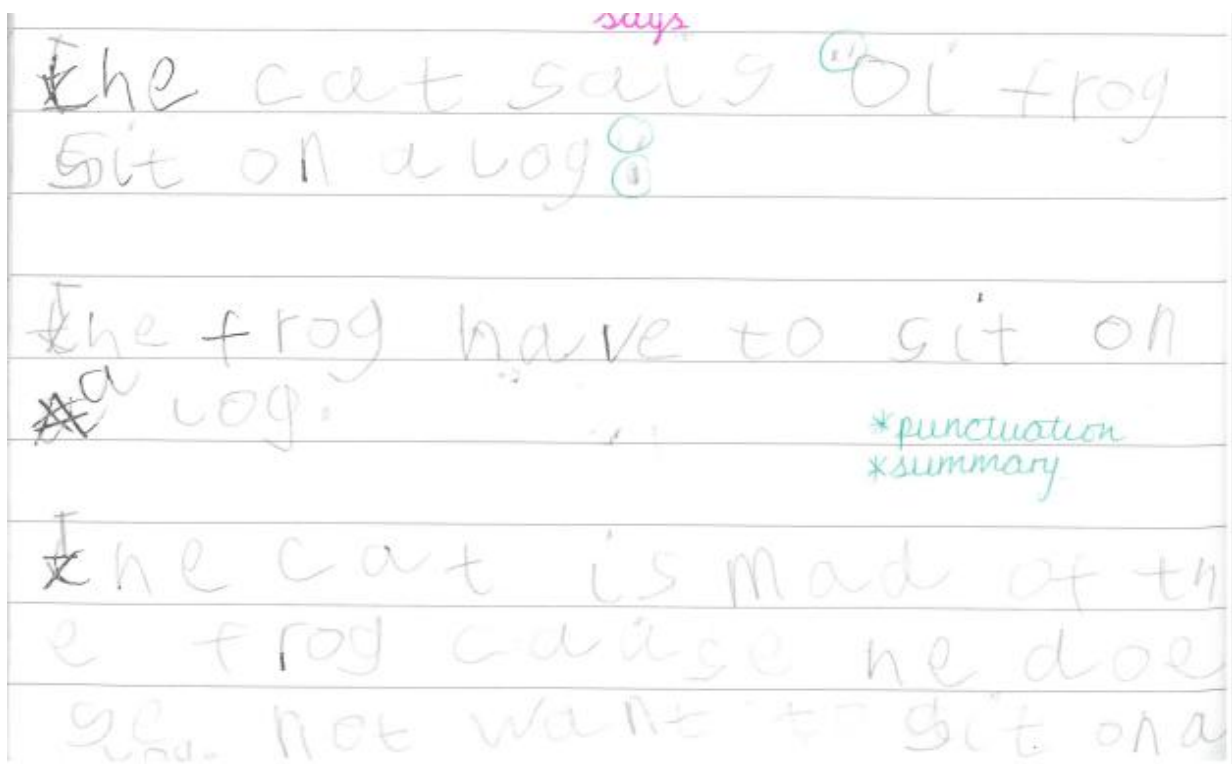 says
The cat sais "Oi frog
sit on a log".
The frog have to sit on
a log.
*punctuation
*summary
The cat is mad at th
e frog cause he doe
not want to sit on a